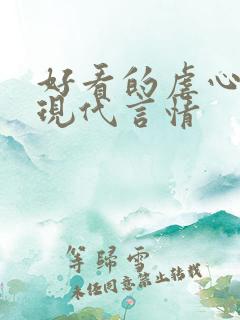 好看的虐心
现代言情
等归雪
未经同意禁止转载